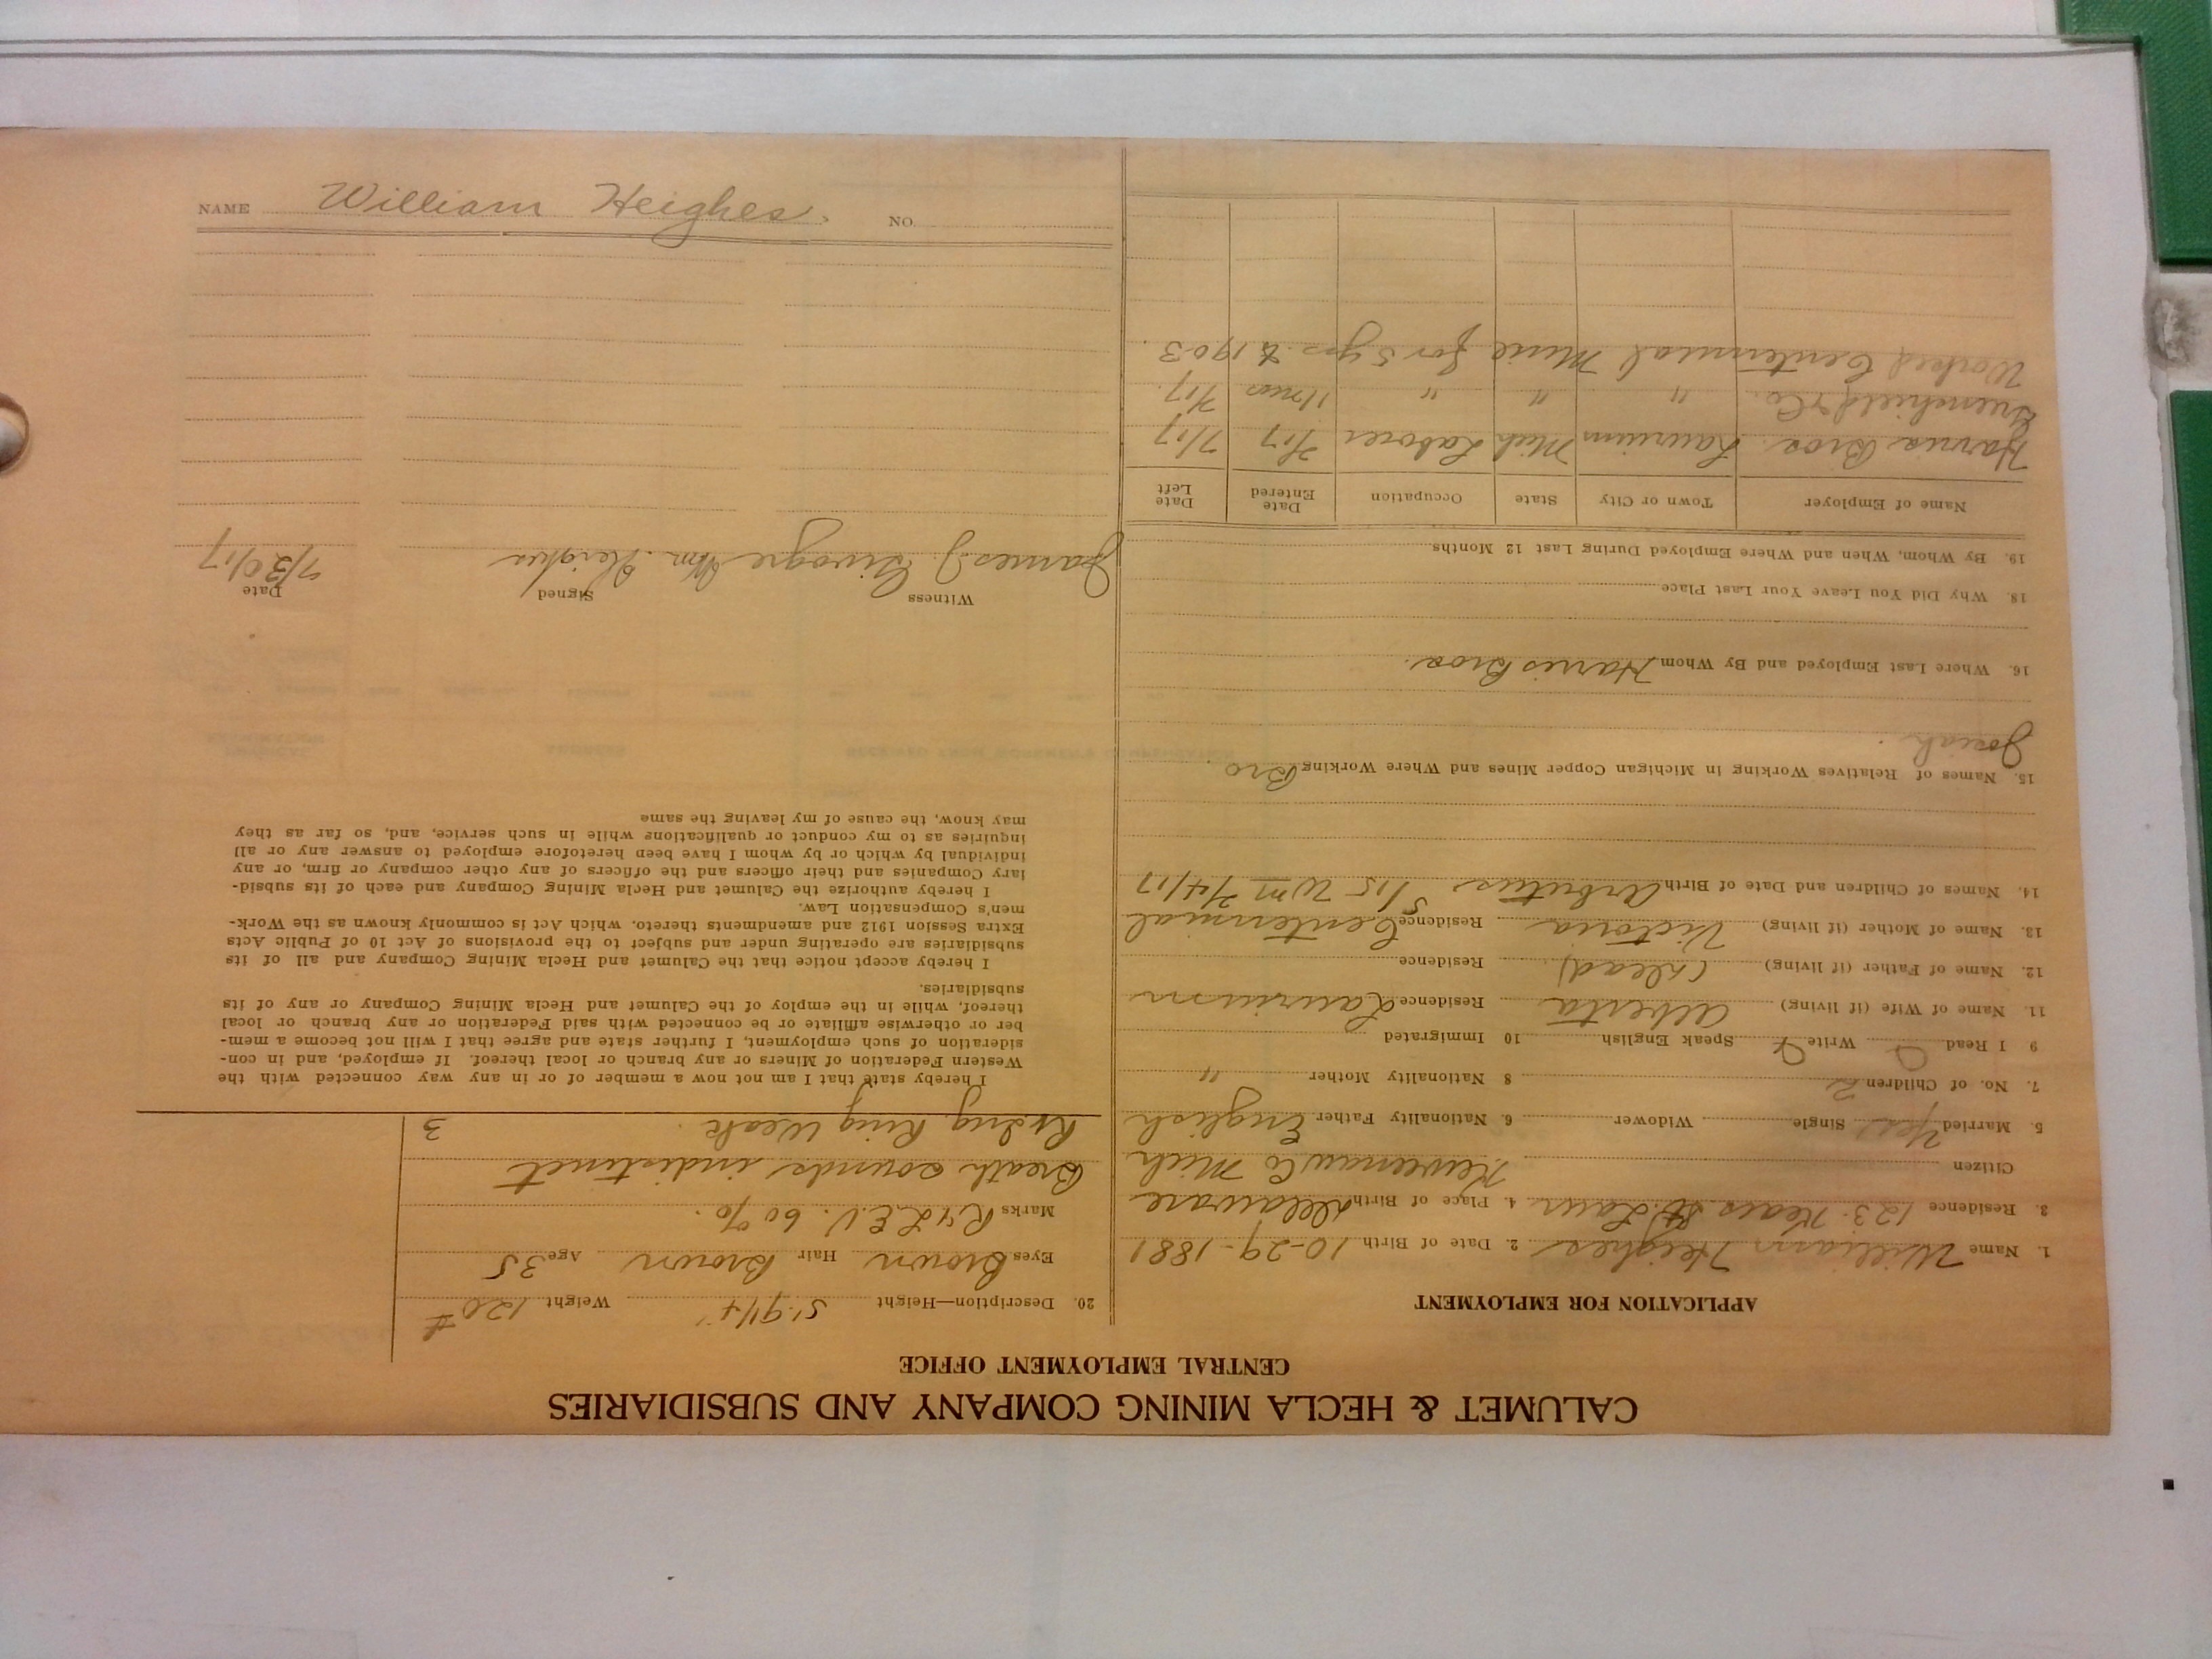 CALUMET & HECLA MINING COMPANY AND SUBSIDIARIES
CENTRAL EMPLOYMENT OFFICE
APPLICATION FOR EMPLOYMENT
1. Name William Heighes 2. Date of Birth 10-29-1881
3. Residence 123 Kears St. Laur. 4. Place of Birth Delaware
Citizen Keweenaw Co Mich
5. Married Yes Single Widower 6. Nationality Father English
7. No. of Children 2 8 Nationality Mother "
9 I Read Write Speak English 10 Immigrated
11. Name of Wife (if living) Alberta Residence Laurium
12. Name of Father (if living) (dead) Residence
13. Name of Mother (if living) Victoria Residence Centennial
14. Names of Children and Date of Birth Arbutus 5/15 Wm 7/4/17
15. Names of Relatives Working in Michigan Copper Mines and Where Working Bro
Josiah.
16. Where Last Employed and By Whom Harris Bros.
18. Why Did You Leave Your Last Place
19. By Whom, When and Where Employed During Last 12 Months
Name of Employer Town or City State Occupation Date Entered Date Left
Harris Bros. Laurium Mich Laborer 7/17 7/17
& Co. " " " 11 mos 7/17.
Worked Centennial Mine for 5 yrs. to 1903.
20. Description—Height 5' 9 1/4" Weight 120 #
Eyes Brown Hair Brown Age 35
Marks R & L E.V. 60 %.
Breath sounds indistinct
Rt Ing. Ring Weak. 3
I hereby state that I am not now a member of or in any way connected with the
Western Federation of Miners or any branch or local thereof. If employed, and in con-
sideration of such employment, I further state and agree that I will not become a mem-
ber or otherwise affiliate or be connected with said Federation or any branch or local
thereof, while in the employ of the Calumet and Hecla Mining Company or any of its
subsidiaries.
I hereby accept notice that the Calumet and Hecla Mining Company and all of its
subsidiaries are operating under and subject to the provisions of Act 10 of Public Acts
Extra Session 1912 and amendments thereto. which Act is commonly known as the Work-
men's Compensation Law.
I hereby authorize the Calumet and Hecla Mining Company and each of its subsid-
iary Companies and their officers and the officers of any other company or firm, or any
individual by which or by whom I have been heretofore employed to answer any or all
inquiries as to my conduct or qualifications while in such service, and, so far as they
may know, the cause of my leaving the same
Witness Signed Date
James J. Wm. Heighes 7/30/17
NAME William Heighes. NO.